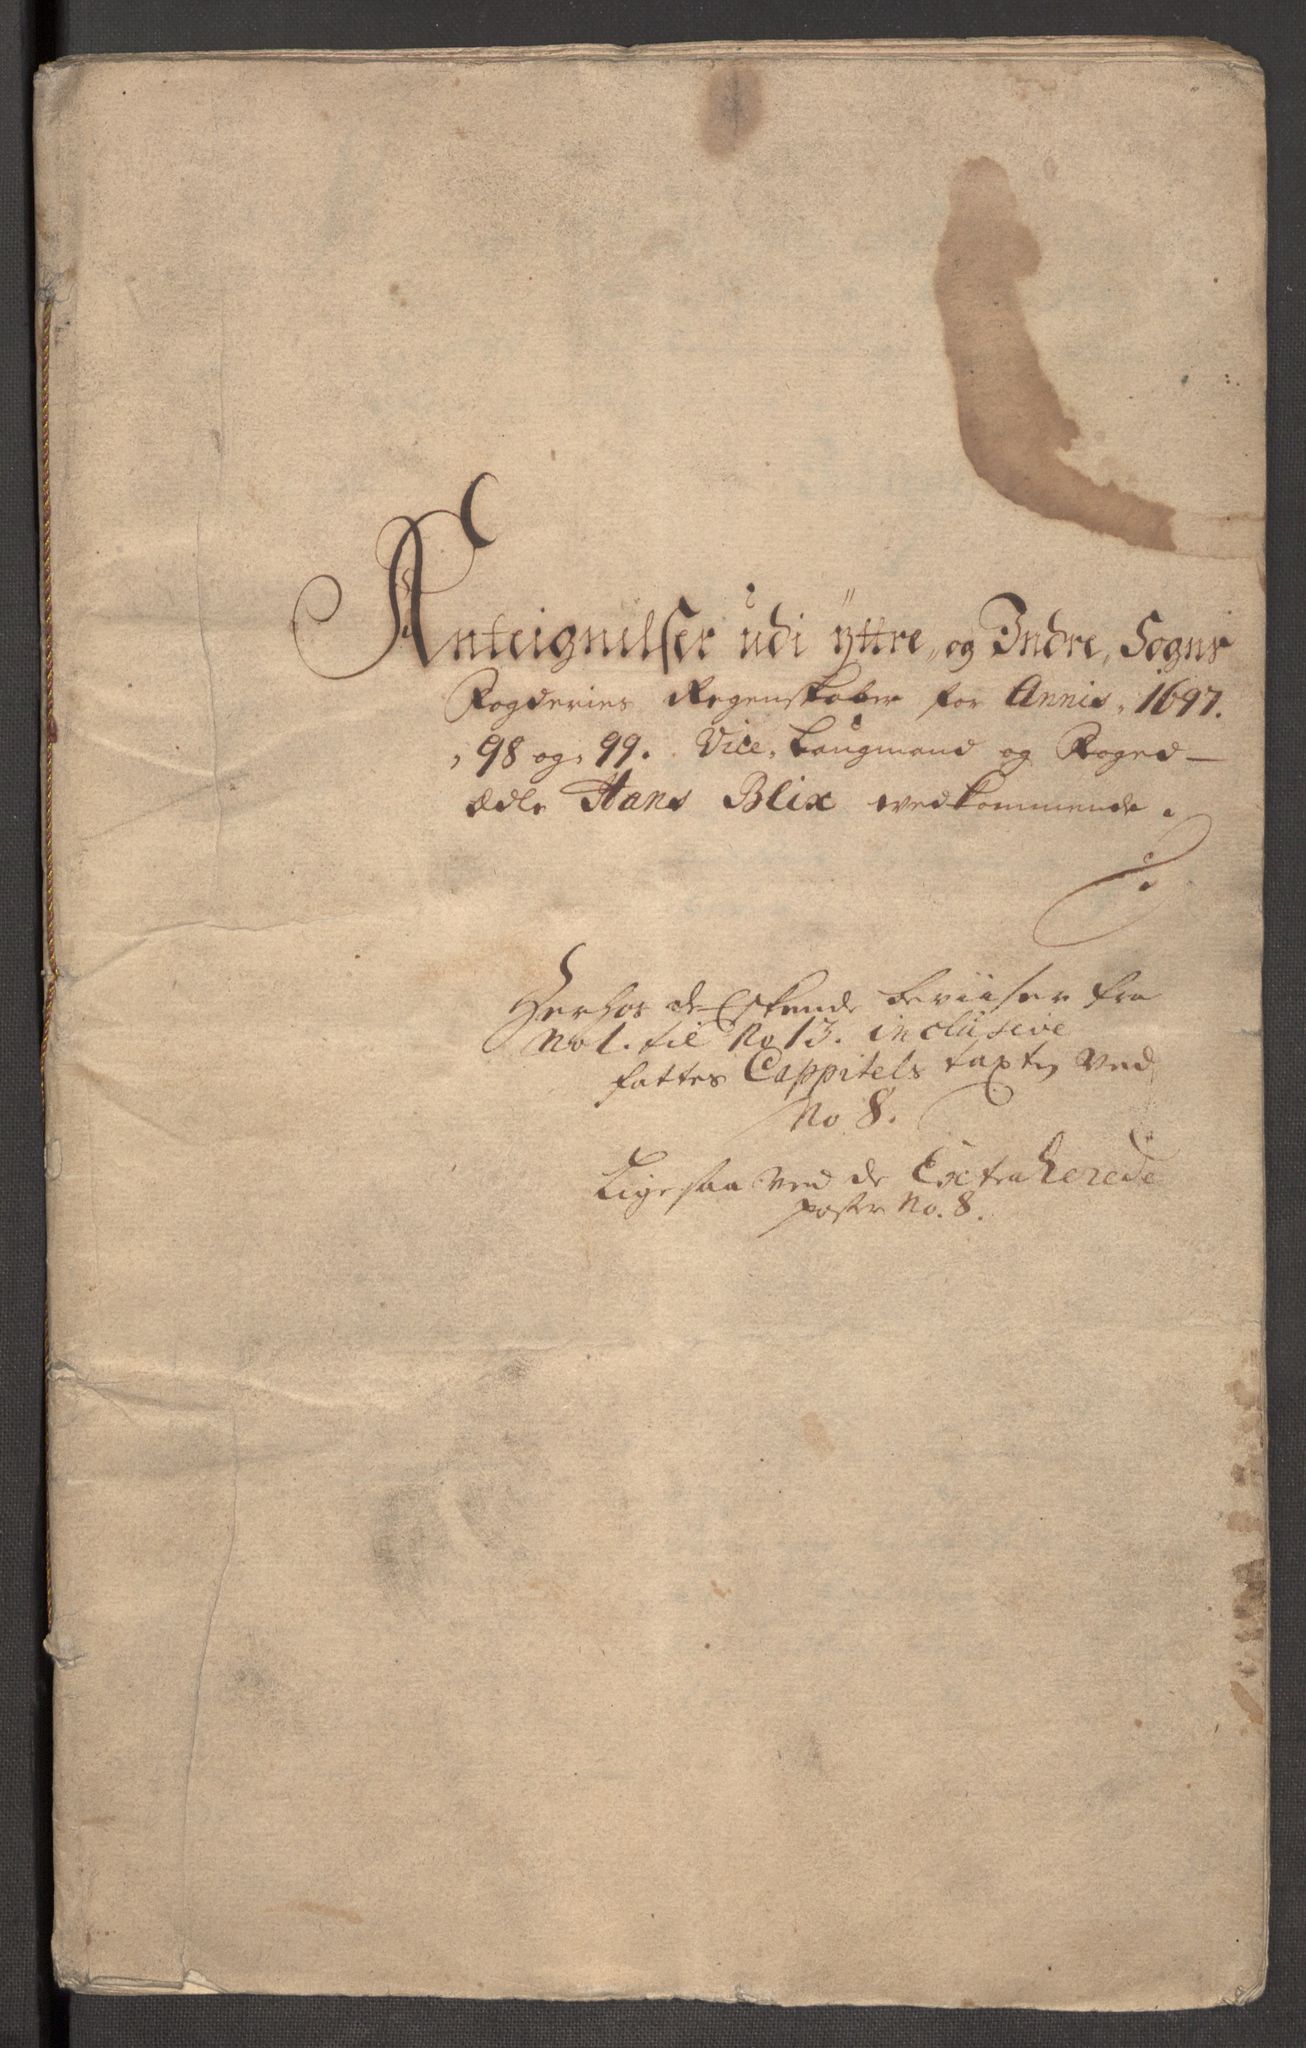 Anteignelser udi ÿttre, og Indre, Sogns
Fogderies Regenskaber for Annis, 1697.
, 98 og, 99. Vice, Laugmand og Foged
Ædle Hans Blix vedkommende.
Herhos de Eskende beviiser fra
No 1. til No 13. inclusive
fattes Cappitels taxten ved
No 8.
Ligesaa ved de Extraherede
poster No. 8.